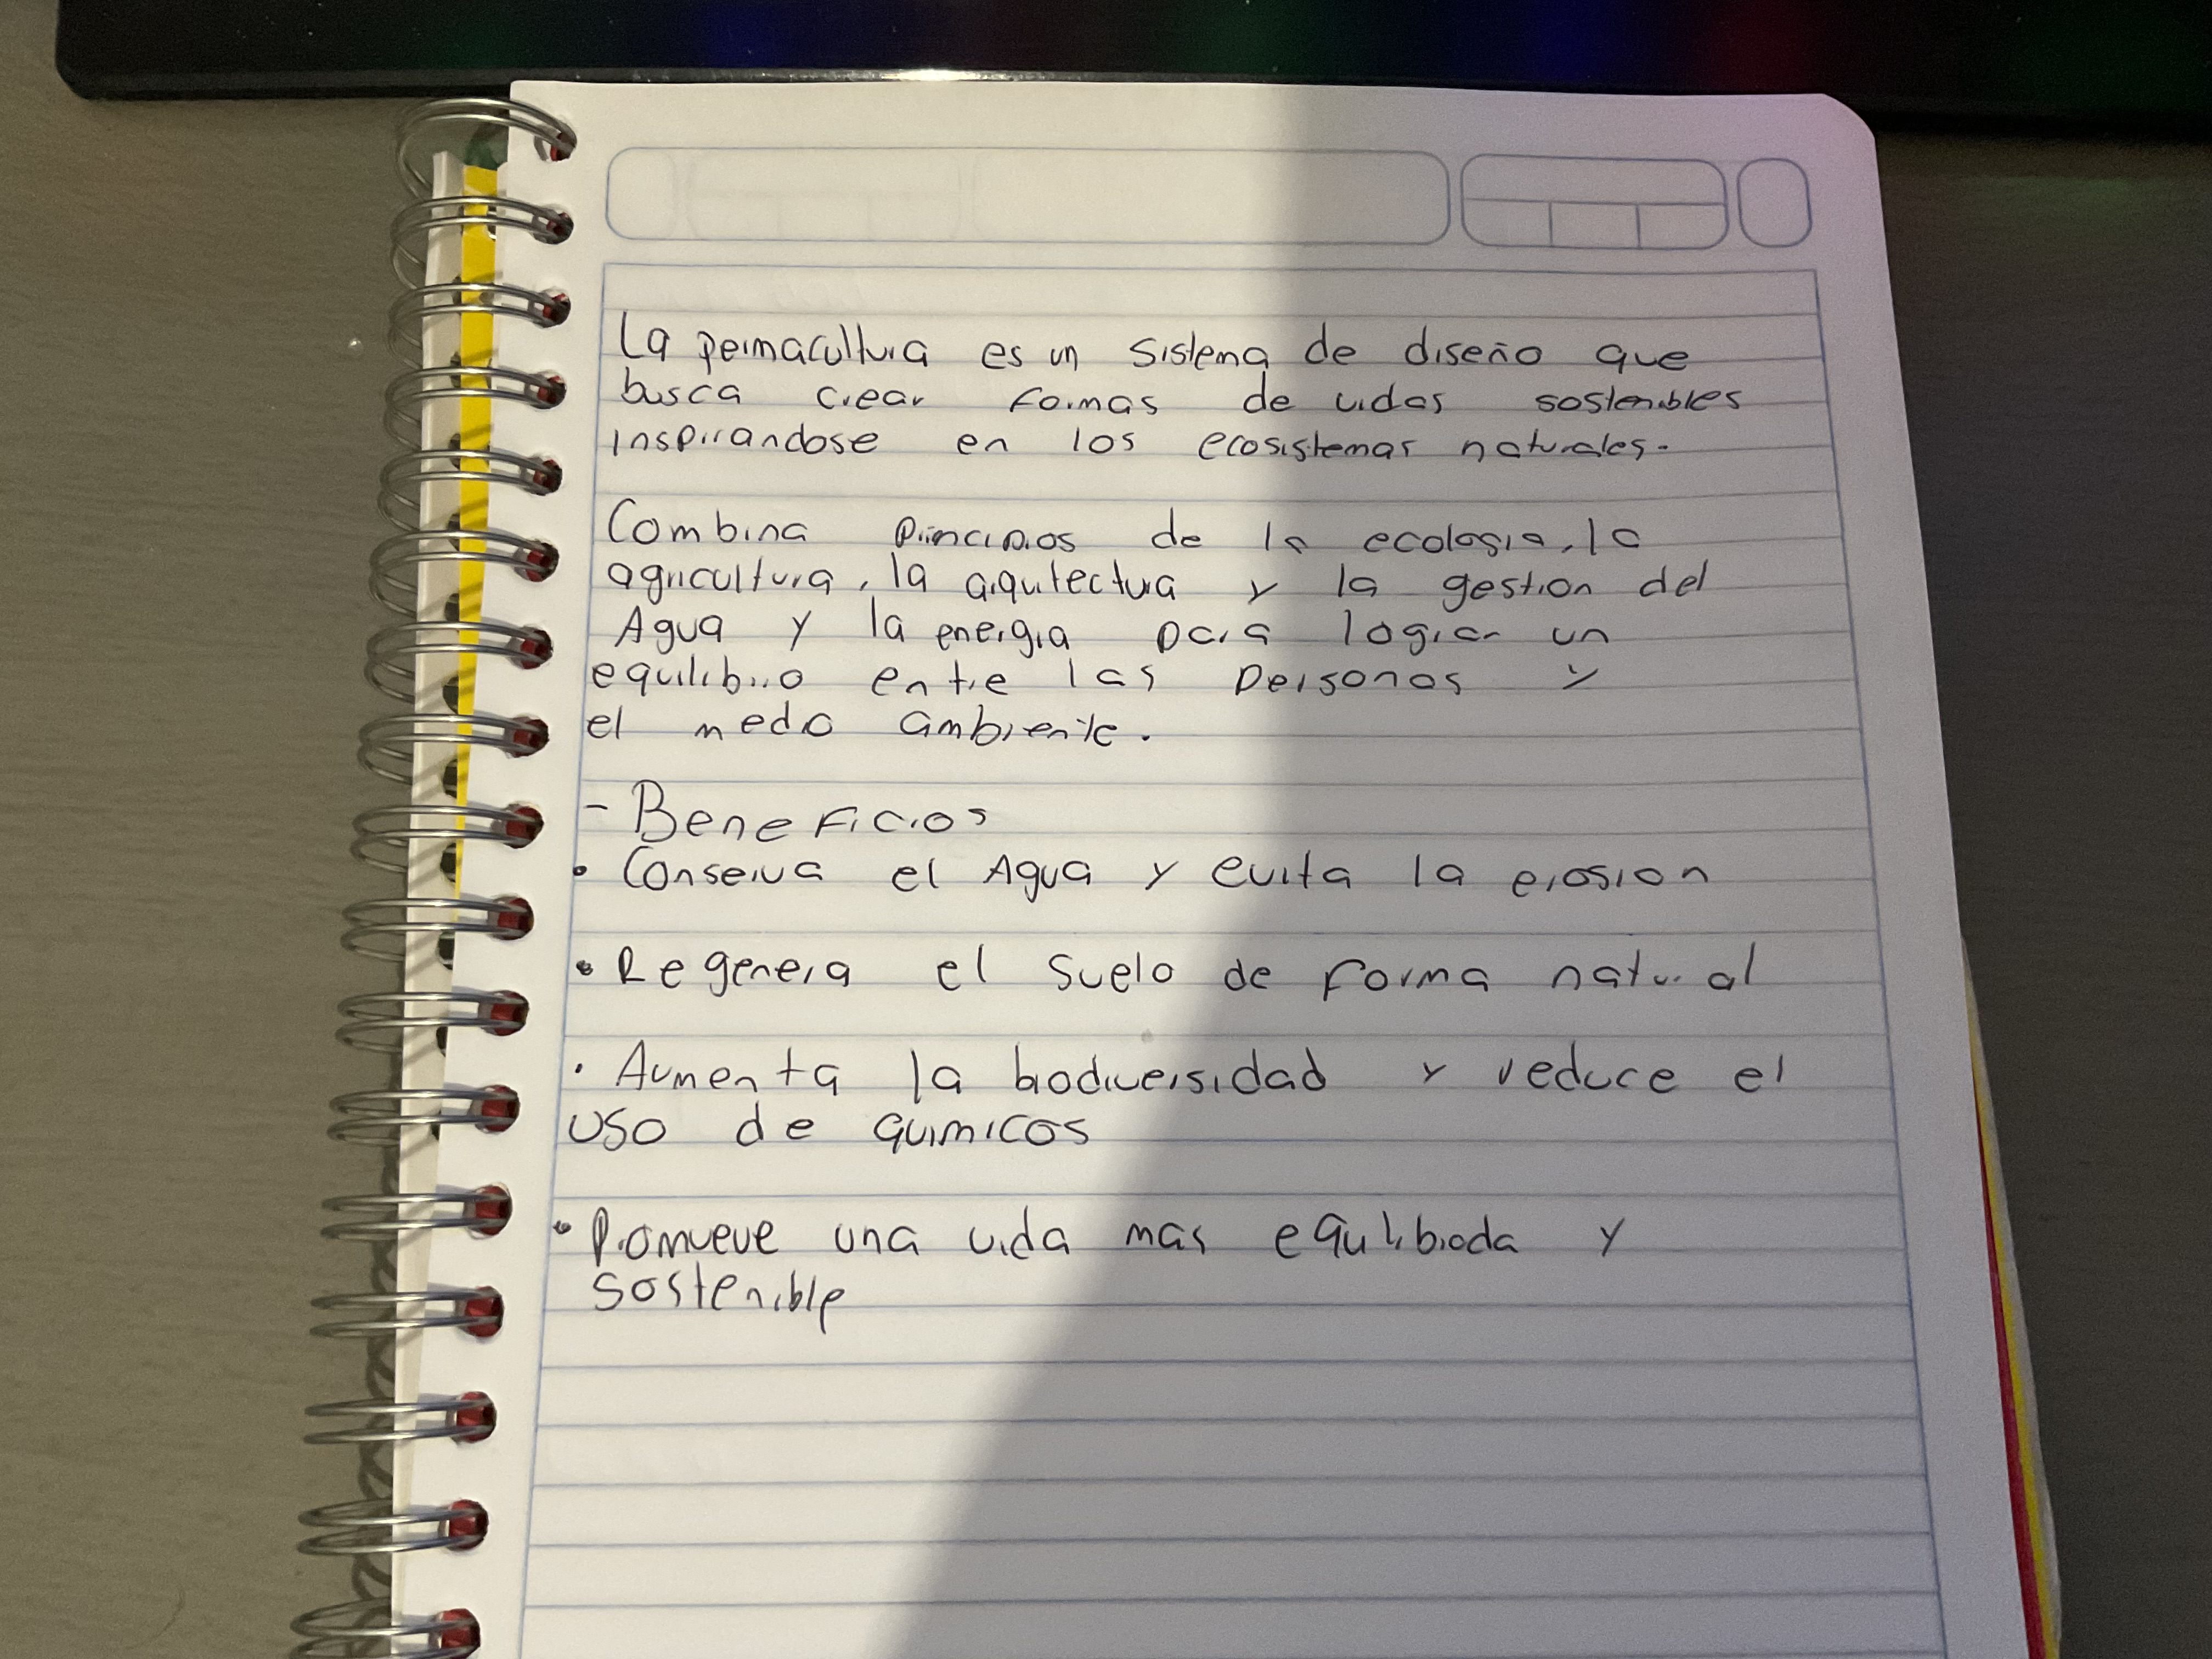 La permacultura es un sistema de diseño que
busca crear formas de vidas sostenibles
inspirandose en los ecosistemas naturales.
Combina principios de la ecologia, la
agricultura, la arquitectura y la gestion del
Agua y la energia para lograr un
equilibrio entre las personas y
el medio ambiente.
- Beneficios
• Conserva el Agua y evita la erosion
• Regenera el suelo de forma natural
• Aumenta la biodiversidad y reduce el
uso de quimicos
• Promueve una vida mas equilibrada y
sostenible